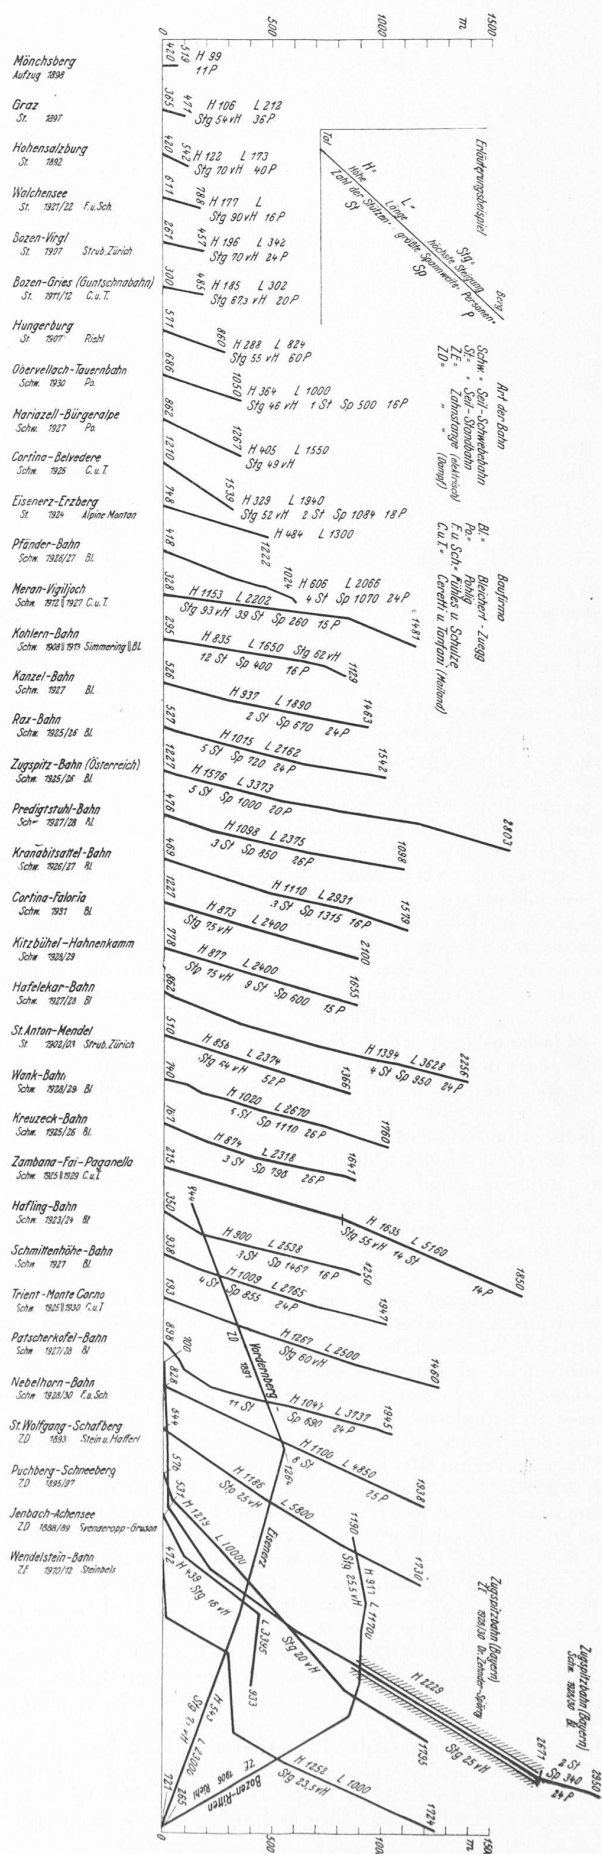 0 500 1000 m 1500
Mönchsberg
Aufzug 1898
420 519 H 99
11 P
Graz
St. 1897
365 471 H 106 L 212
Stg 54 vH 36 P
Hohensalzburg
St. 1892
420 542 H 122 L 173
Stg 70 vH 40 P
Walchensee
St. 1921/22 F.u.Sch.
611 788 H 177 L
Stg 90 vH 16 P
Bozen-Virgl
St. 1907 Strub, Zürich
261 457 H 196 L 342
Stg 70 vH 24 P
Bozen-Gries (Guntschnabahn)
St. 1911/12 C.u.T.
300 485 H 185 L 302
Stg 67,3 vH 20 P
Hungerburg
St 1907 Riehl
571 860 H 288 L 824
Stg 55 vH 60 P
Obervellach-Tauernbahn
Schw. 1930 Po.
686 1050 H 364 L 1000
Stg 46 vH 1 St Sp 500 16 P
Mariazell-Bürgeralpe
Schw. 1927 Po.
862 1267 H 405 L 1550
Stg 49 vH
Cortina-Belvedere
Schw. 1926 C.u.T.
1210 1539 H 329 L 1940
Stg 52 vH 2 St Sp 1084 18 P
Eisenerz-Erzberg
St. 1924 Alpine Montan
748 1222 H 484 L 1300
Pfänder-Bahn
Schw. 1926/27 Bl.
418 1024 H 606 L 2066
4 St Sp 1070 24 P
Meran-Vigiljoch
Schw. 1912 || 1927 C.u.T.
328 1481 H 1153 L 2202
Stg 93 vH 39 St Sp 260 15 P
Kohlern-Bahn
Schw. 1908 || 1913 Simmering || Bl.
295 1129 H 835 L 1650 Stg 62 vH
12 St Sp 400 16 P
Kanzel-Bahn
Schw. 1927 Bl.
526 1463 H 937 L 1890
2 St Sp 670 24 P
Rax-Bahn
Schw. 1925/26 Bl.
527 1542 H 1015 L 2162
5 St Sp 720 24 P
Zugspitz-Bahn (Österreich)
Schw. 1925/26 Bl.
1227 2803 H 1576 L 3373
5 St Sp 1000 20 P
Predigtstuhl-Bahn
Sch- 1927/28 Bl.
476 1098 H 1098 L 2375
3 St Sp 850 26 P
Kranabitsattel-Bahn
Schw. 1926/27 Bl.
469 1579 H 1110 L 2931
3 St Sp 1315 16 P
Cortina-Faloria
Schw. 1931 Bl
1227 2100 H 873 L 2400
Stg 75 vH
Kitzbühel-Hahnenkamm
Schw 1928/29
778 1655 H 877 L 2400
Stg 75 vH 9 St Sp 600 15 P
Hafelekar-Bahn
Schw. 1927/28 Bl
862 2256 H 1394 L 3628
4 St Sp 950 24 P
St. Anton-Mendel
St 1902/03 Strub, Zürich
510 1366 H 856 L 2374
Stg 64 vH 52 P
Wank-Bahn
Schw 1928/29 Bl
740 1760 H 1020 L 2670
5 St Sp 1110 26 P
Kreuzeck-Bahn
Schw. 1925/26 Bl.
767 1641 H 874 L 2318
3 St Sp 798 26 P
Zambana-Fai-Paganella
Schw. 1925 || 1929 C.u.T
215 1850 H 1635 L 5160
Stg 55 vH 14 St 14 P
Hafling-Bahn
Schw. 1923/24 Bl
350 1250 H 900 L 2538
3 St Sp 1467 16 P
Schmittenhöhe-Bahn
Schw 1927 Bl.
938 1947 H 1009 L 2765
4 St Sp 855 24 P
Trient-Monte Corno
Schw 1925 || 1930 C.u.T
193 1460 H 1267 L 2500
Stg 60 vH
Patscherkofel-Bahn
Schw 1927/28 Bl
898 1945 H 1047 L 3737
11 St Sp 690 24 P
Nebelhorn-Bahn
Schw 1928/30 F.u.Sch.
828 1938 H 1100 L 4850
6 St 25 P
St. Wolfgang-Schafberg
ZD 1893 Stein u. Hafferl
544 1730 H 1186 L 5800
Stg 25 vH
Puchberg-Schneeberg
ZD 1895/97
576 1795 H 1219 L 10000
Stg 20 vH
Jenbach-Achensee
ZD 1888/89
531 933 H 439 L 3395
Stg 16 vH
Wendelstein-Bahn
ZE 1910/12 Steinbeis
472 1724 H 1252 L 1000
Stg 23,5 vH
944 Vordernberg - Eisenerz
ZD 1891
1204
H 543 L 23000
Stg 71 vH
700
721
265
Bozen-Ritten
ZE 1906 Riehl
1190
H 911 L 11700
Stg 25,5 vH
Zugspitzbahn (Bayern)
ZE 1928/30 Dr. Zehnder-Spörry
H 2229
Stg 25 vH
2671
Zugspitzbahn (Bayern)
Schw. 1928/30 Bl.
2 St
Sp 340
24 P
2950
Erläuterungsbeispiel
Tal
Berg
H= Höhe
L= Länge
Stg= höchste Steigung
Zahl der Stützen
St
größte Spannweite
Sp
Personen
P
Art der Bahn
Schw. = Seil-Schwebebahn
St. = Seil-Standbahn
ZE = Zahnstange (elektrisch)
ZD = " " (Dampf)
Baufirma
Bl. = Bleichert-Zuegg
Po. = Pohlig
F.u.Sch. = Fühles u. Schulze
C.u.T. = Ceretti u. Tanfani (Mailand)
0 500 1000 m 1500